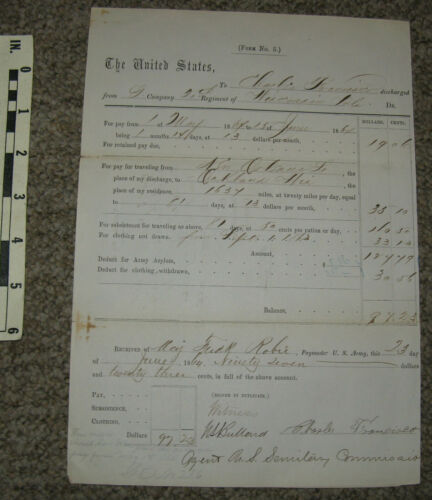 (FORM No. 5.)
The United States,
To Charles Francisco discharged
from G Company Regiment of Wisconsin Vols Dr.
DOLLARS. CENTS.
For pay from 1 of May 1864 to 15 of June 1864
being 1 months 14 days, at 13 dollars per month,
For retained pay due, 19 06
For pay for traveling from New Orleans La, the
place of my discharge, to Oakland Wis, the
place of my residence, 1637 miles, at twenty miles per day, equal
to 81 days, at 13 dollars per month, 35 10
For subsistence for traveling as above, 81 days, at 30 cents per ration or per day,
For clothing not drawn, 33 10
Amount,
Deduct for Army Asylum,
Deduct for clothing overdrawn, 30 56
Balance, 97 23
RECEIVED of Maj Fredk Robie, Paymaster U. S. Army, this 23 day
of June 1864, Ninety seven dollars
and twenty three cents, in full of the above account.
PAY,
(SIGNED IN DUPLICATE.)
SUBSISTENCE,
Witness
CLOTHING,
Dollars 97.23
WS Bullard Charles Francisco
Agent U.S. Sanitary Commission
IN. 0
1
2
3
4
5
6